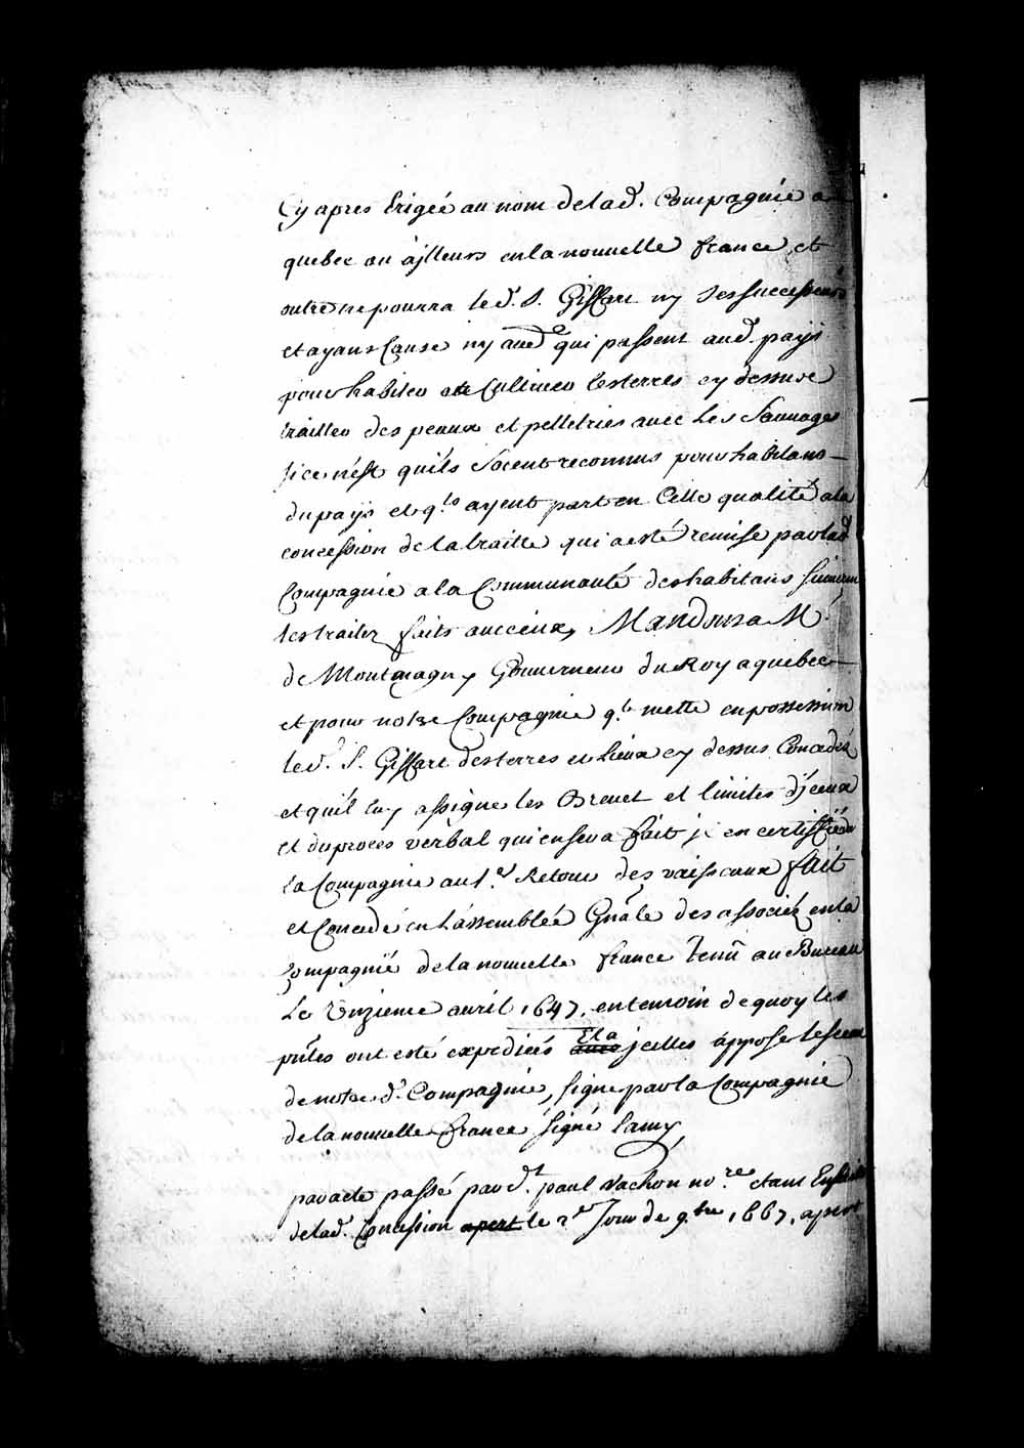 Cy apres Erigée au nom de lad. Compagnie a
quebec ou ajlleurs en la nouuelle france et
outre ne pourra led. S. Giffart ny ses successeurs
et ayans Cause ny aue qui passent aud. pays
pour habiter Cultiuer les terres cy dessus
traitter des peaux et pelletries auec Les Sauuages
si ce n'est quils soient reconnus pour habitans
du pays et q.ls ayent part en Cette qualité a la
concession de la traitte qui a esté remise par lad
Compagnie a la Communauté des habitans suiuant
les traitez faits auec eux, Mandons a M.
de Montmagny Gouuerneur du Roy a quebec
et pour notre Compagnie q.l mette en possession
led. S. Giffart des terres et Lieux cy dessus Concedéz
et quil luy assigne les et limites d'jceux
et du proces verbal qui en sera fait jl en certiffiera
la Compagnie au 1.er Retour des vaisseaux fait
et Concedé en L'assemblée Gnãle des associéz en la
Compagnië de la nouuelle france Tenũ au Bureau
Le Vnzieme auril 1647. en temoin de quoy les
pñtes ont esté expediées Et a jcelles apposé le sceau
de notre d. Compagnie, signe par la Compagnie
de la nouuelle france signé Lamy,
par acte passé par d.t paul Vachon no.re etant Ensuite
de lad. Concession apert le 2.e Jour de 9.bre 1667. apert